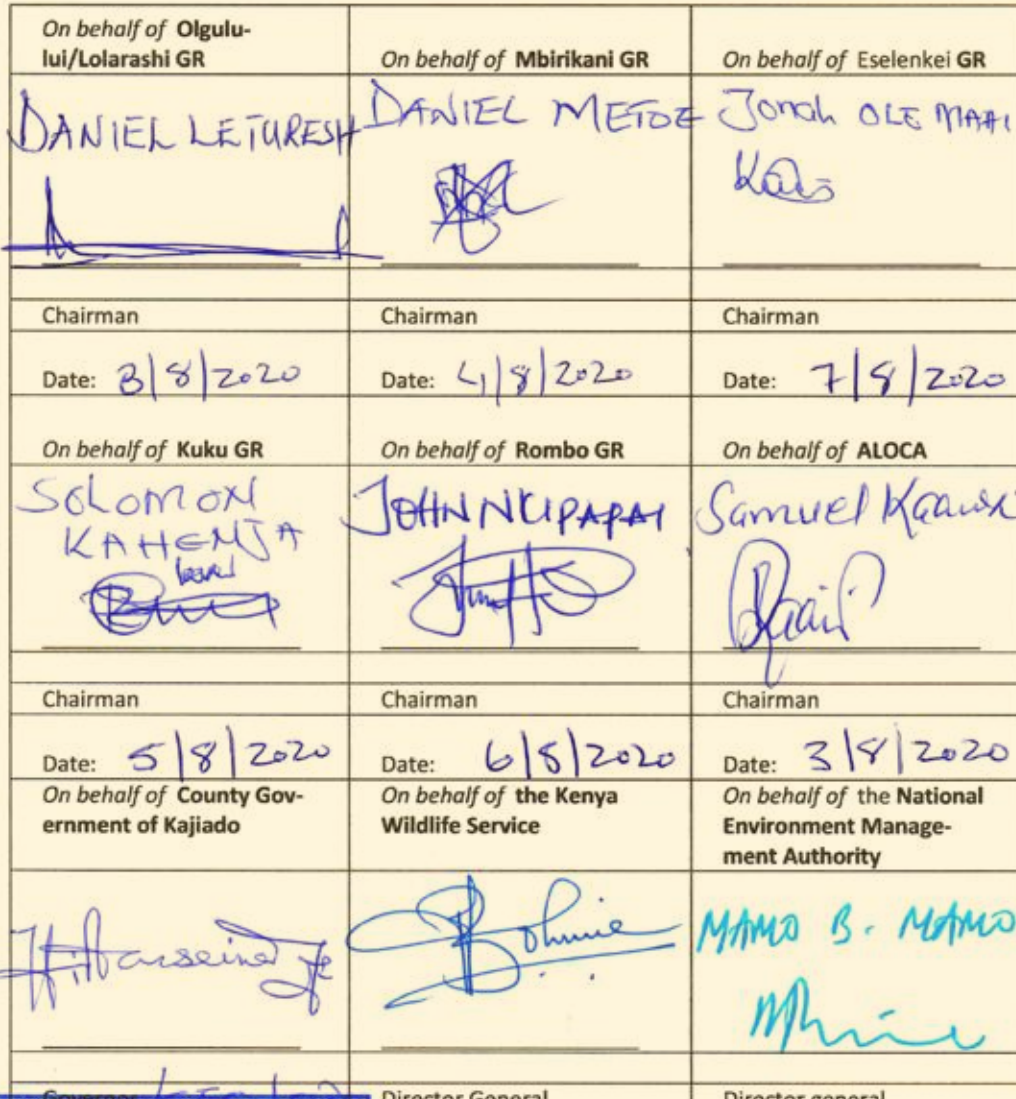 On behalf of Olgulu-
lui/Lolarashi GR
On behalf of Mbirikani GR
On behalf of Eselenkei GR
DANIEL LETURESH
DANIEL METOE
Jonah OLE MAAI
Chairman
Chairman
Chairman
Date: 3/8/2020
Date: 4/8/2020
Date: 7/8/2020
On behalf of Kuku GR
On behalf of Rombo GR
On behalf of ALOCA
SOLOMON
KAHENJA
JOHN NKIPAPAI
Samuel
Chairman
Chairman
Chairman
Date: 5/8/2020
Date: 6/8/2020
Date: 3/8/2020
On behalf of County Gov-
ernment of Kajiado
On behalf of the Kenya
Wildlife Service
On behalf of the National
Environment Manage-
ment Authority
MAMO B. MAMO
Governor
Director General
Director general